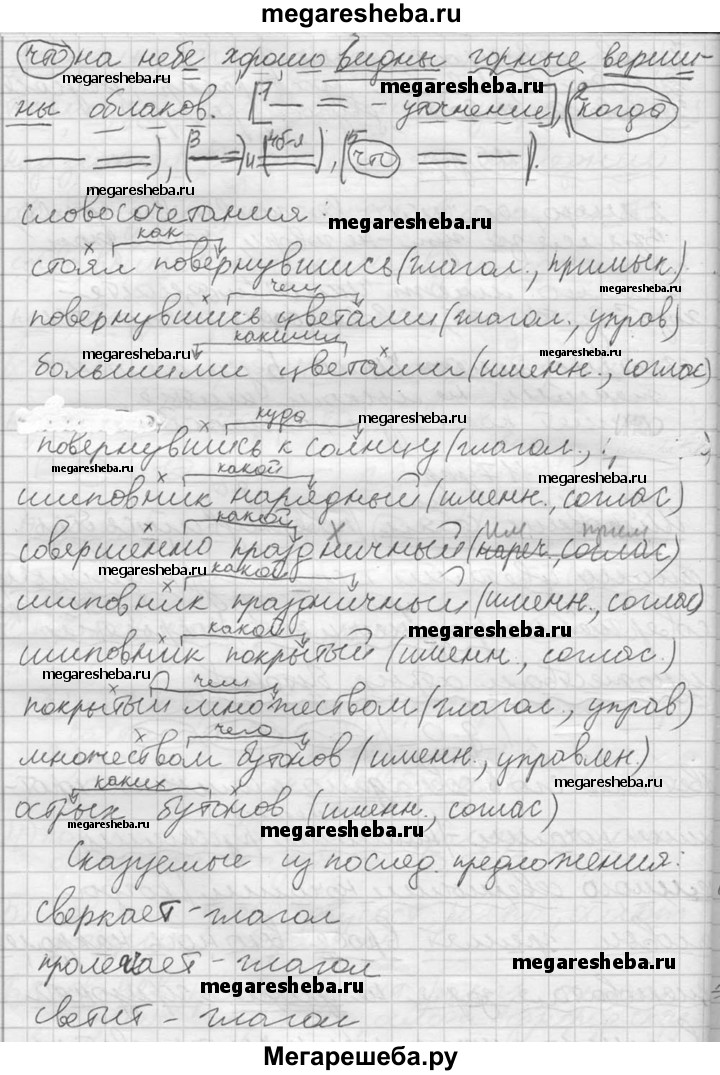 megaresheba.ru
что на небе хорошо видны горные верши-
megaresheba.ru megaresheba.ru
ны облаков. [1 — = - уточнение], (2 когда
— =), (3 — =) и (4б-л =), (5 что = —).
megaresheba.ru
словосочетания: megaresheba.ru
как
стоял повернувшись (глагол., примык.)
megaresheba.ru megaresheba.ru
чем
повернувшись цветами (глагол., управ)
megaresheba.ru какими megaresheba.ru
большими цветами (именн., соглас)
куда megaresheba.ru
повернувшись к солнцу (глагол.,
megaresheba.ru какой megaresheba.ru
шиповник нарядный (именн., соглас)
какой им прим
совершенно праздничный (нареч., соглас)
megaresheba.ru какой
шиповник праздничный (именн., соглас)
какой megaresheba.ru
шиповник покрытый (именн., соглас.)
megaresheba.ru чем
покрытый множеством (глагол., управ)
чего
множеством бутонов (именн., управлен.)
каких megaresheba.ru
острых бутонов (именн., соглас)
megaresheba.ru megaresheba.ru
Сказуемые из послед. предложения:
сверкает - глагол
пролетает - глагол megaresheba.ru
megaresheba.ru
светит - глагол
Мегарешеба.ру